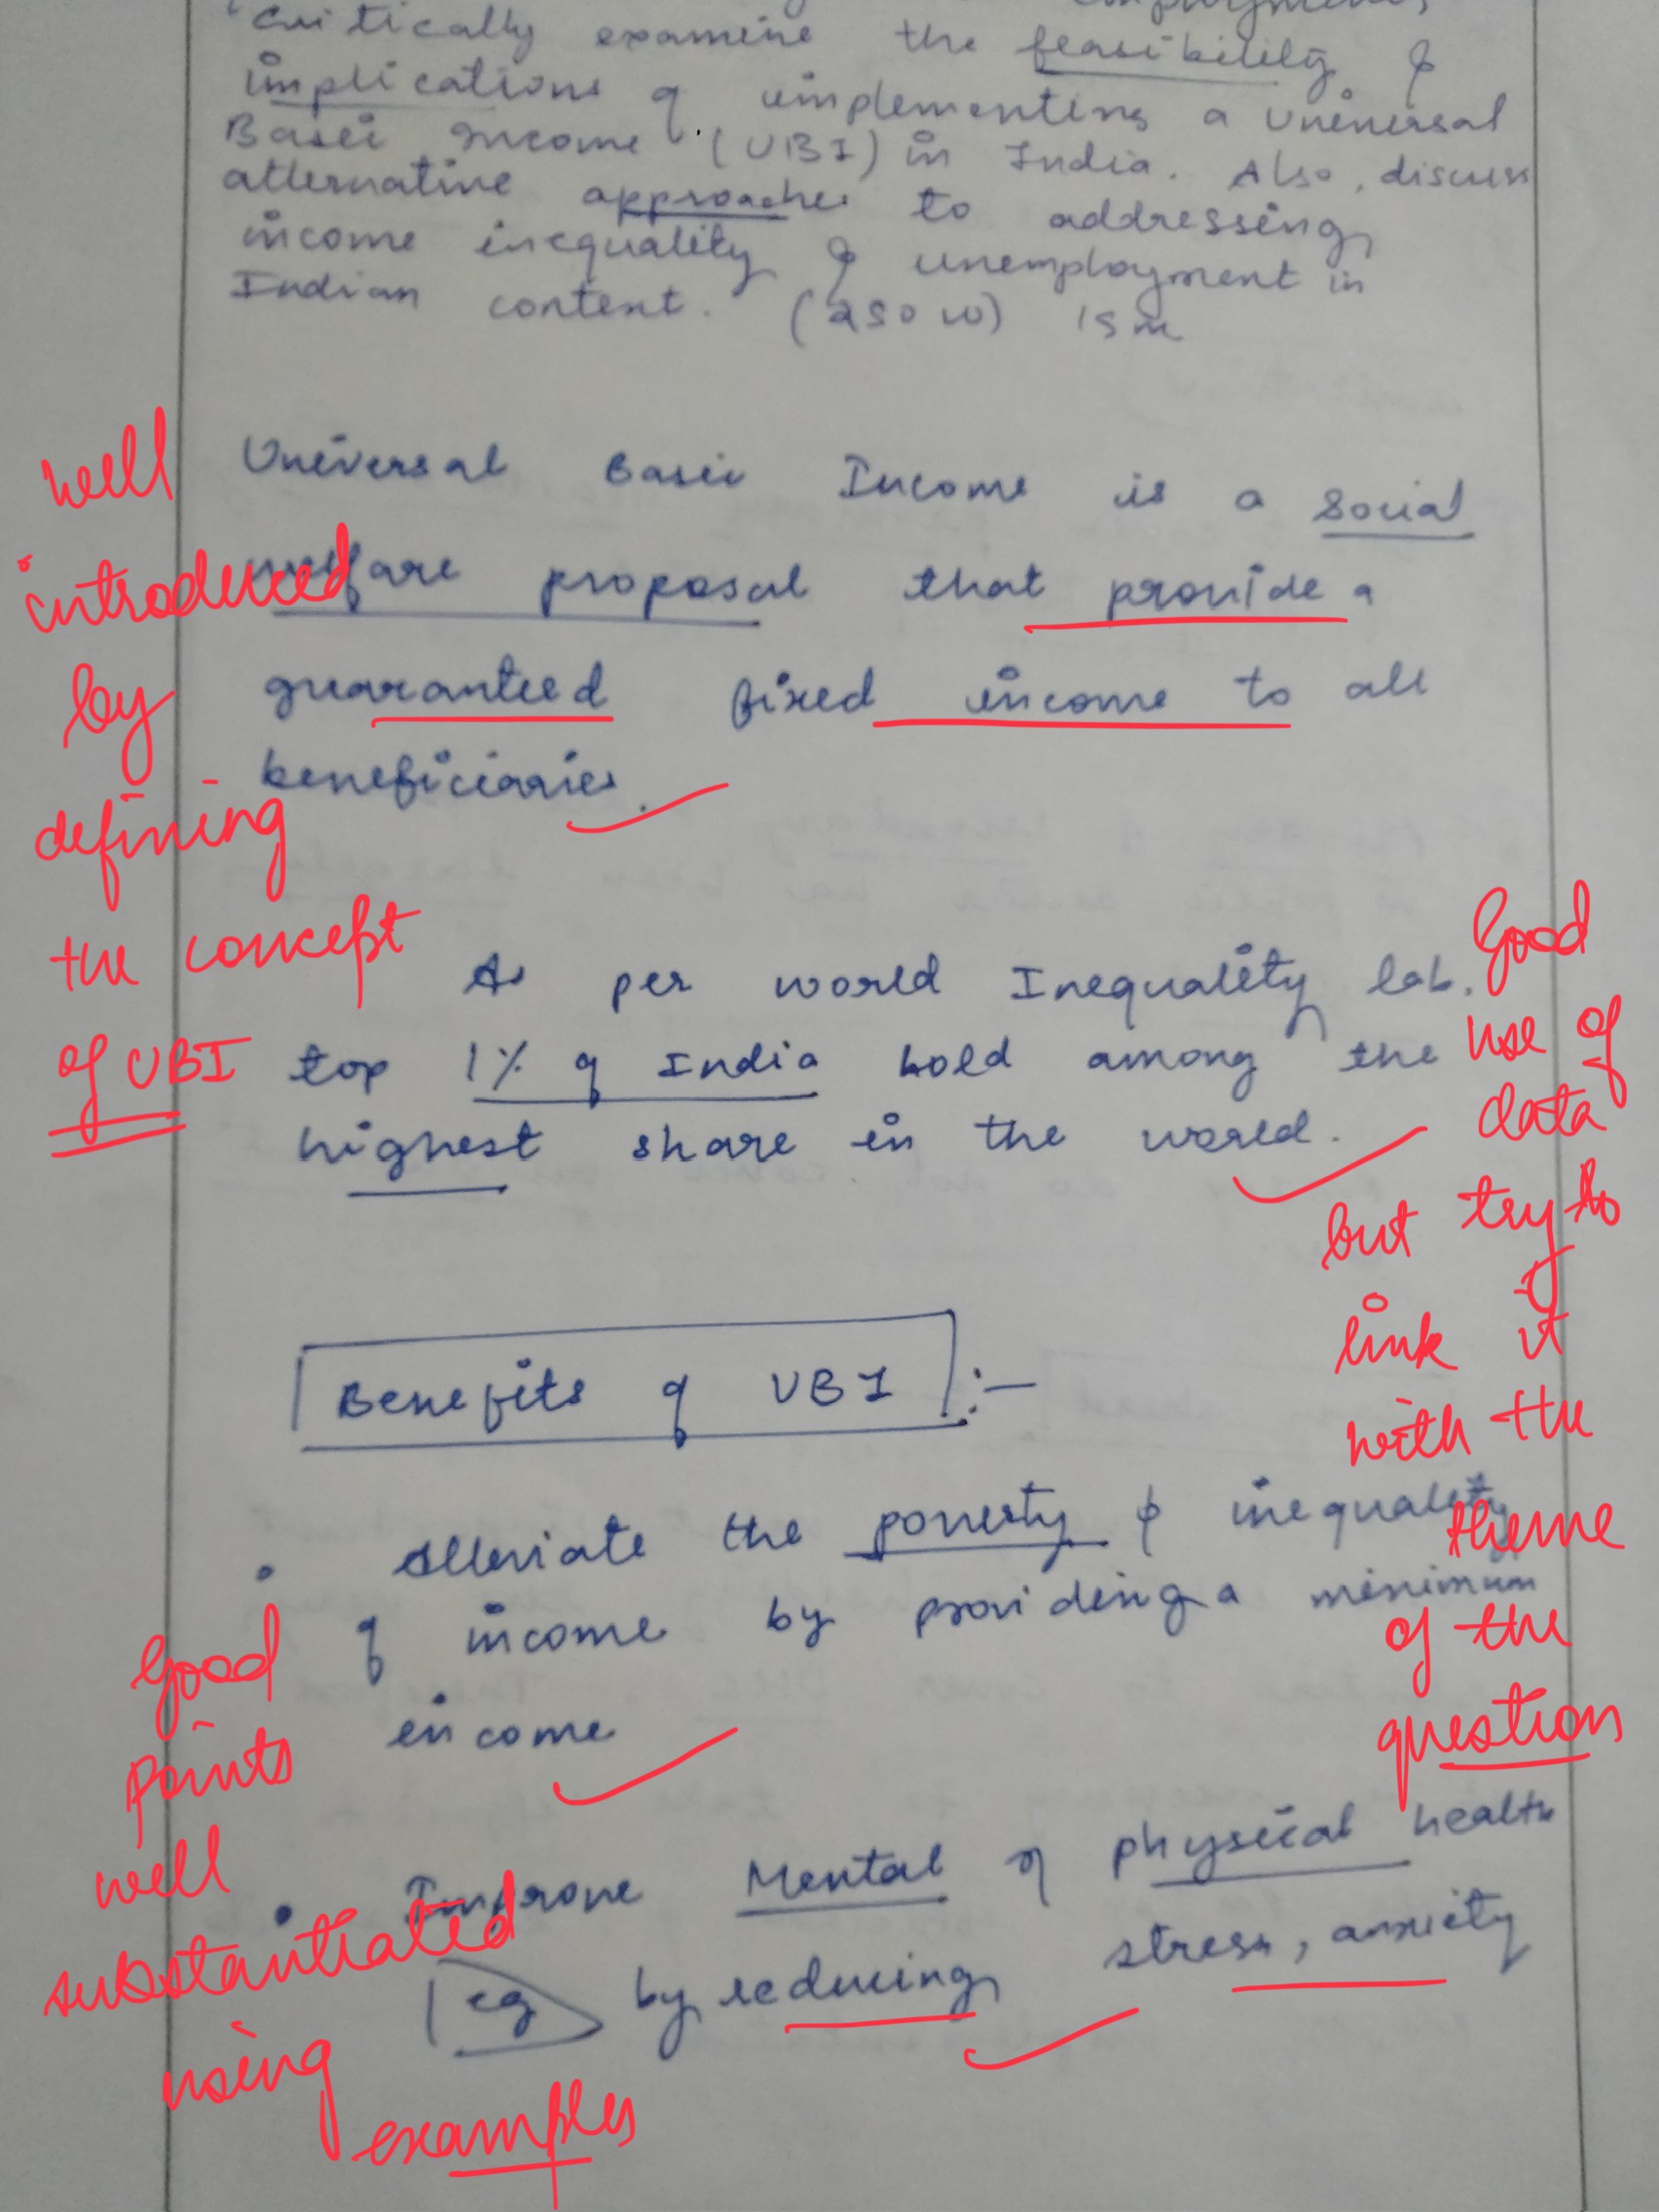 Critically examine the feasibility &
implications of implementing a Universal
Basic Income (UBI) in India. Also, discuss
alternative approaches to addressing
income inequality & unemployment in
Indian context. (250 w) 15 m
Universal Basic Income is a social
welfare proposal that provide a
guaranteed fixed income to all
beneficiaries.
well
introduced
by
defining
the concept
of UBI
As per world Inequality lab.
top 1% of India hold among the
highest share in the world.
Good
use of
data
but try to
link it
with the
theme
of the
question
Benefits of UBI :-
• Alleviate the poverty & inequality
of income by providing a minimum
income
• Improve Mental & physical health
eg by reducing stress, anxiety
Good
points
well
substantiated
using
examples